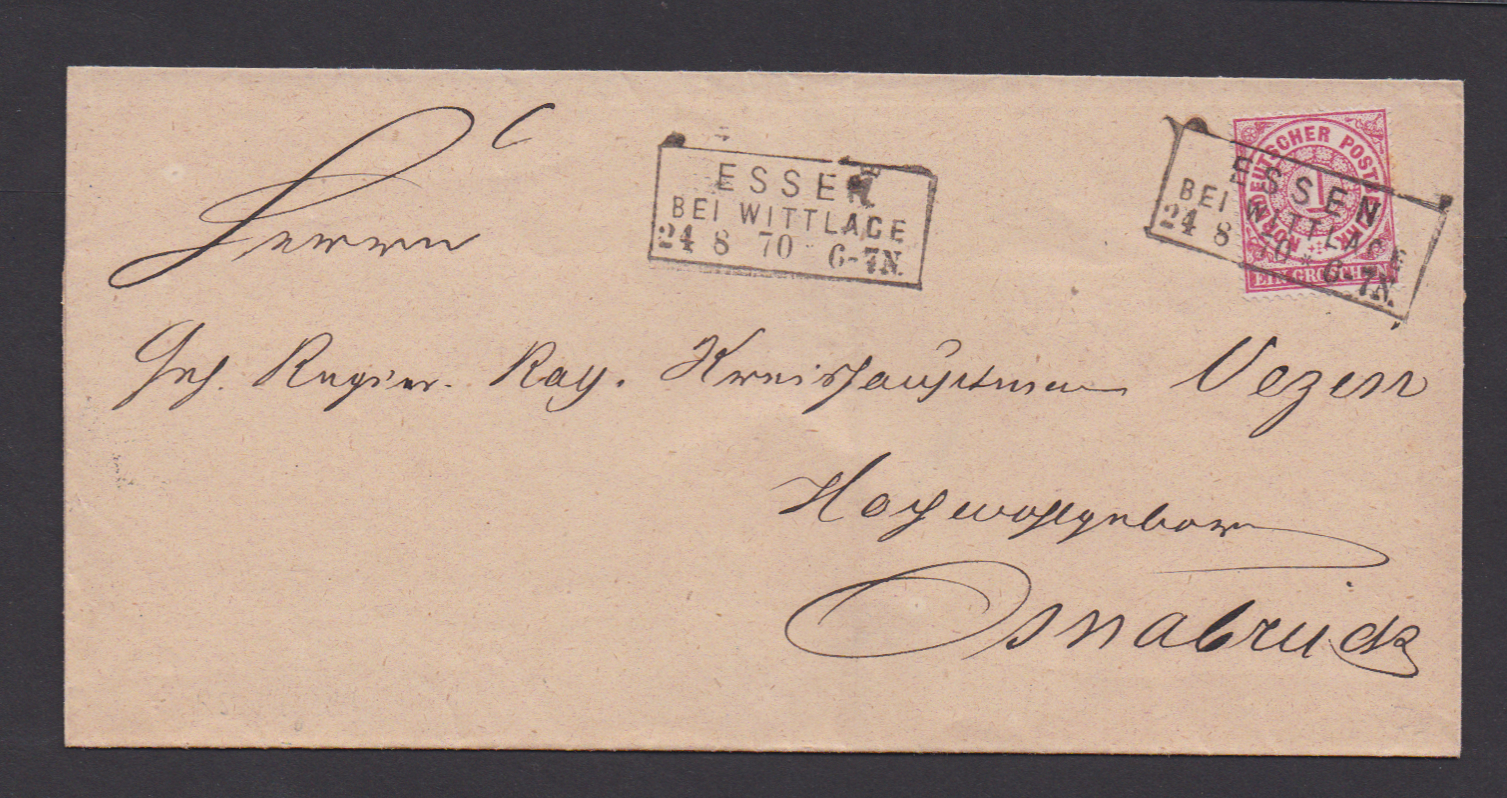 ESSEN
BEI WITTLAGE
24 8 70 6-7N.
NORDDEUTSCHER POSTBEZIRK
1
EIN GROSCHEN
ESSEN
BEI WITTLAGE
24 8 70 * 6-7N.
Herrn
Geh. Regier. Rath. Kreishauptmann Vezin
Hochwohlgeboren
Osnabrück